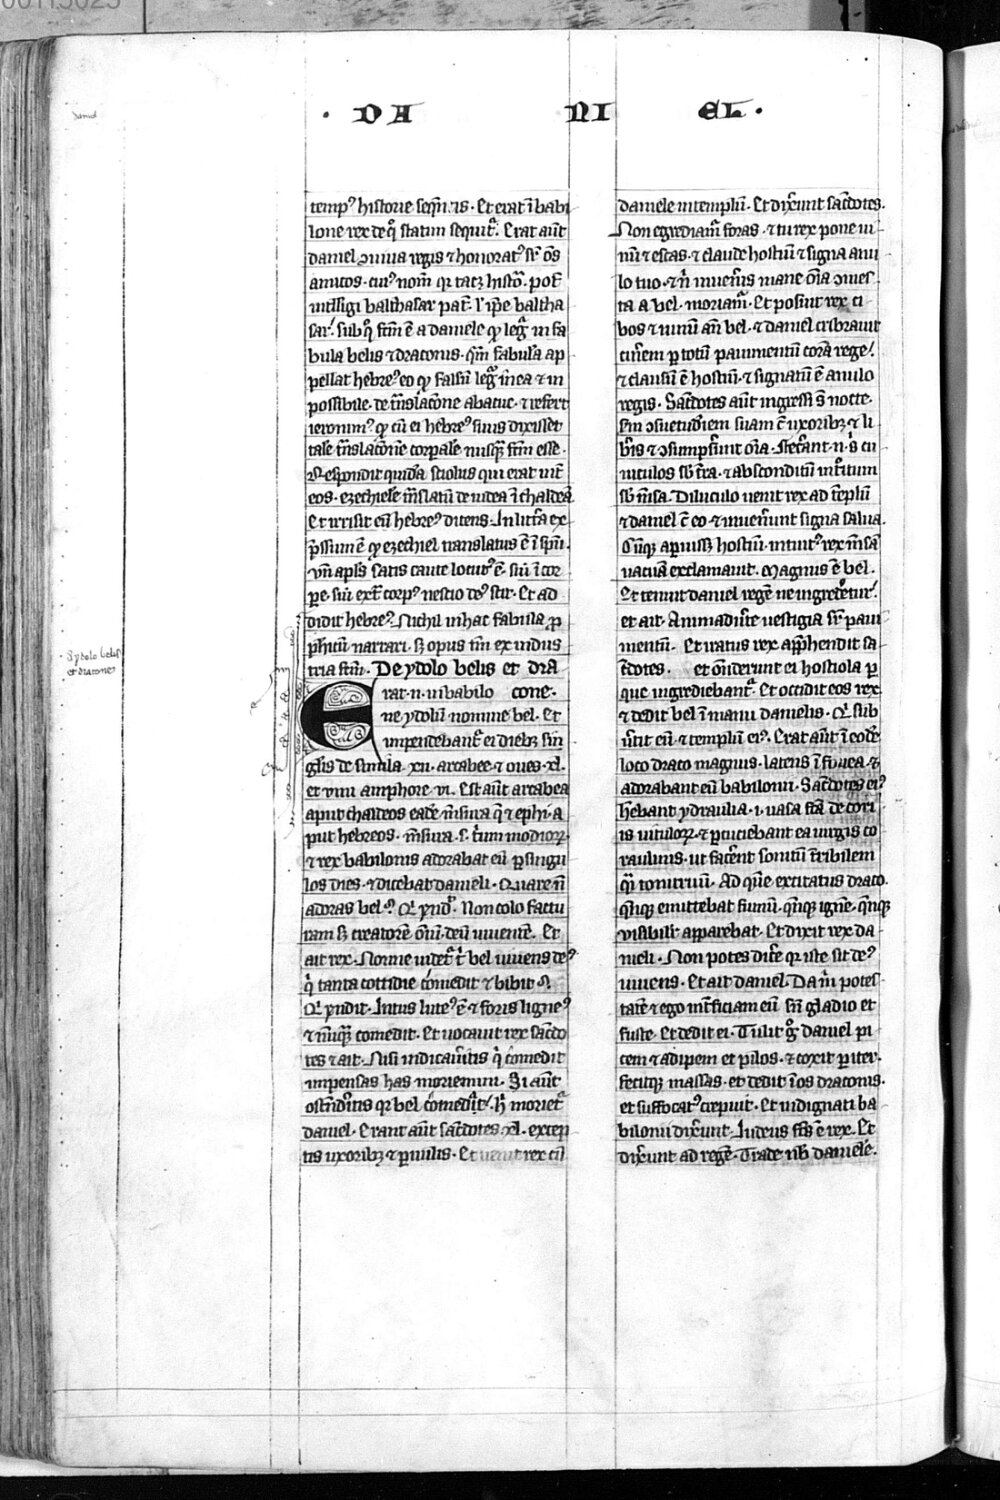 00113025
· DA NI EL ·
Daniel
temp⁹ historie seqn̄tis · Et erat ī babi
lone rex de q̊ statim sequit᷑ · Erat aūt
daniel ꝯuiua regis ⁊ honorat⁹ sr̄ oēs
amicos · cui⁹ nom̄ q̄ tacꝫ histō · pot̄
intelligi balthasar pat̄ · l' ipē baltha
sar · sub q̊ sc̄m ē a daniele ꝙ leg᷑ in fa
bula belis ⁊ draconis · qm̄ fabulā ap
pellat hebre⁹ eo ꝙ falsū leg᷑ in ea ⁊ in
possibile · de tn̄slac̄one abacuc · ⁊ refert
ieronim⁹ ꝙ cū ei hebre⁹ suus dixisset
tale tn̄slac̄onē corpalē nusq̄ȝ sc̄m esse ·
Respondit quidā sciolus qui erat int̄
eos · ezechielē tn̄slatū de iudea ī chaldeā
Et irrisit eū hebre⁹ dicens · In littera ex
p̄ssum ē ꝙ ezechiel translatus ē ī spū ·
Vn̄ apl̄s satis caute locut⁹ ē · siū ī cor
pe · siū ext̄ corp⁹ nescio de⁹ scit · Et ad
didit hebre⁹ · Nichil in hac fabula ꝓ
pheticū narrari · sȝ opus tm̄ ex indus
tria sc̄m · De ydolo belis et dra
Erat · n · ī babilo cone ·
ne ydolū nomine bel · Et
impendebant᷑ ei diebȝ sin
gl̄is de simila · xii · artabee · ⁊ oues · xl ·
et vini amphore · vi · Est aūt artabea
aput chaldeos eadē mn̄sura q̄ ⁊ ephi · a
put hebreos · mn̄sura · s · trium modioꝝ ·
⁊ rex babilonis adorabat eū ꝑ singu
los dies · ⁊ dicebat danieli · Quare n̄
adoras bel · Q̄ rn̄dit · Non colo factu
ram sȝ creatorē oīum deū uiuentē · Et
ait rex · Nonne uidet᷑ t̄ bel uiuens de⁹
q̄ tanta cottidie comedit ⁊ bibit ·
Q̄ rn̄dit · Intus lute⁹ ē ⁊ foris ligne⁹
⁊ nūq̄ȝ comedit · Et uocauit rex sac̄do
tes ⁊ ait · Nisi indicau̅itis q̄s comedit
impensas has moriemini · Si aūt
ostend̄itis qr bel comed̄it · hic moriet᷑
daniel · Erant aūt sac̄dotes · xl · excep
tis uxoribȝ ⁊ ꝑuulis · Et uenit rex cū
· De ydolo belis
et dracone
daniele in templū · Et dix̄unt sac̄dotes ·
Non egrediam᷑ foras · ⁊ tu rex pone ui
nū ⁊ escas · ⁊ claude hostiū ⁊ signa anu
lo tuo · ⁊ n̄ inuen̄is mane oīa ꝯmes
ta a bel · moriam᷑ · Et posuit rex ci
bos ⁊ uinū an̄ bel · ⁊ daniel cribrauit
cin̄em ꝑ totū pauimentū corā rege ·
⁊ clausū ē hostiū · ⁊ signatū ē anulo
regis · Sac̄dotes aūt ingressi s̄t nocte ·
scd̄m ꝯsuetud̄iem suam cū uxoribȝ ⁊ li
b̄is ⁊ ꝯsumps̄unt oīa · Fec̄ant · n · s̄ cu
niculos sb̄ t̄ra · ⁊ absconditū int̄oitum
sb̄ mēsa · Diluculo uenit rex ad tēplū
⁊ daniel cū eo ⁊ inuen̄unt signa salua ·
Cūq̄ȝ aperuissȝ hostiū · intuit⁹ rex mn̄sā
uacuā exclamauit · Magnus ē bel ·
Et tenuit daniel regē ne ingred̄et᷑ur
et ait · Animaduerte uestigia sr̄ paui
mentū · Et iratus rex app̄hendit sa
c̄dotes · et on̄derunt ei hostiola ꝑ
que ingrediebant᷑ · Et occidit eos rex
⁊ dedit bel ī manu danielis · Q̄ sub
u̅tit eū ⁊ templū ei⁹ · Erat aūt ī eodē
loco draco magnus · latens ī fouea · ⁊
adorabant eū babilonii · Sac̄dotes ei⁹
h̄ebant ydraulia · i · uasa fc̄a de cori
is uituloꝝ · ⁊ ꝑcutiebant ea uirgis co
raulinis · ut fac̄ent sonitū t̄ribilem
q̄si tonitruū · Ad quē excitatus draco ·
qn̄q̄ȝ emittebat fumū · qn̄q̄ȝ ignē · qn̄q̄ȝ
uisibilis apparebat · Et dixit rex da
nieli · Non potes dic̄e qr iste sit de⁹
uiuens · Et ait daniel · Da m̄ potes
tatē ⁊ ego int̄ficiam eū sn̄ gladio et
fuste · Et dedit ei · Tulit g̊ daniel pi
cem ⁊ adipem et pilos · ⁊ coxit ꝑiter ·
fecitq̄ȝ massas · et dedit ī os draconis ·
et suffocat⁹ crepuit · Et indignati ba
bilonii dix̄unt · Iudeus fc̄s ē rex · Et
dix̄unt ad regē · Trade nob̄ danielē ·